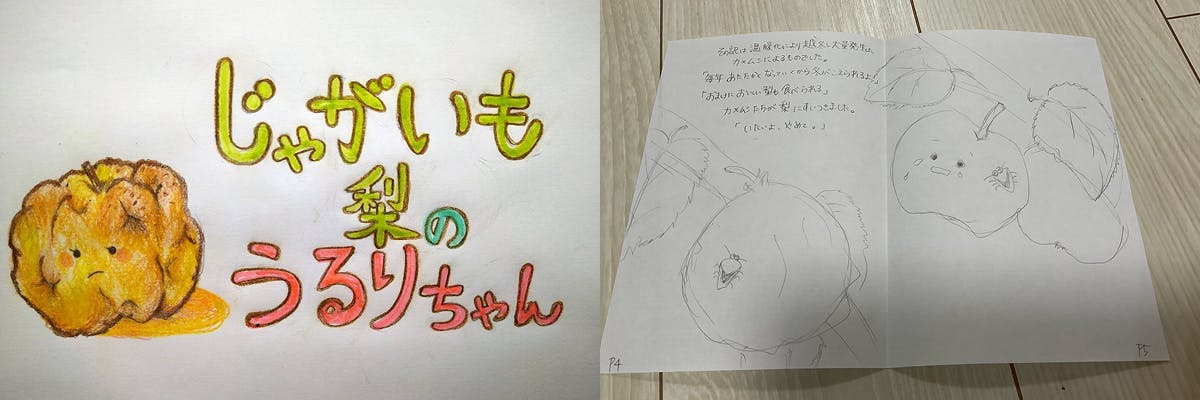 じゃがいも
梨の
うるりちゃん
その記は温暖化により越冬し大量発生した
カメムシによるものでした。
「毎年あたたかくなっていくから冬がこえられるよ!」
「おまけにおいしい梨も食べられる」
カメムシたちが梨にすいつきました。
「いたいよ、やめて。」
P4
P5